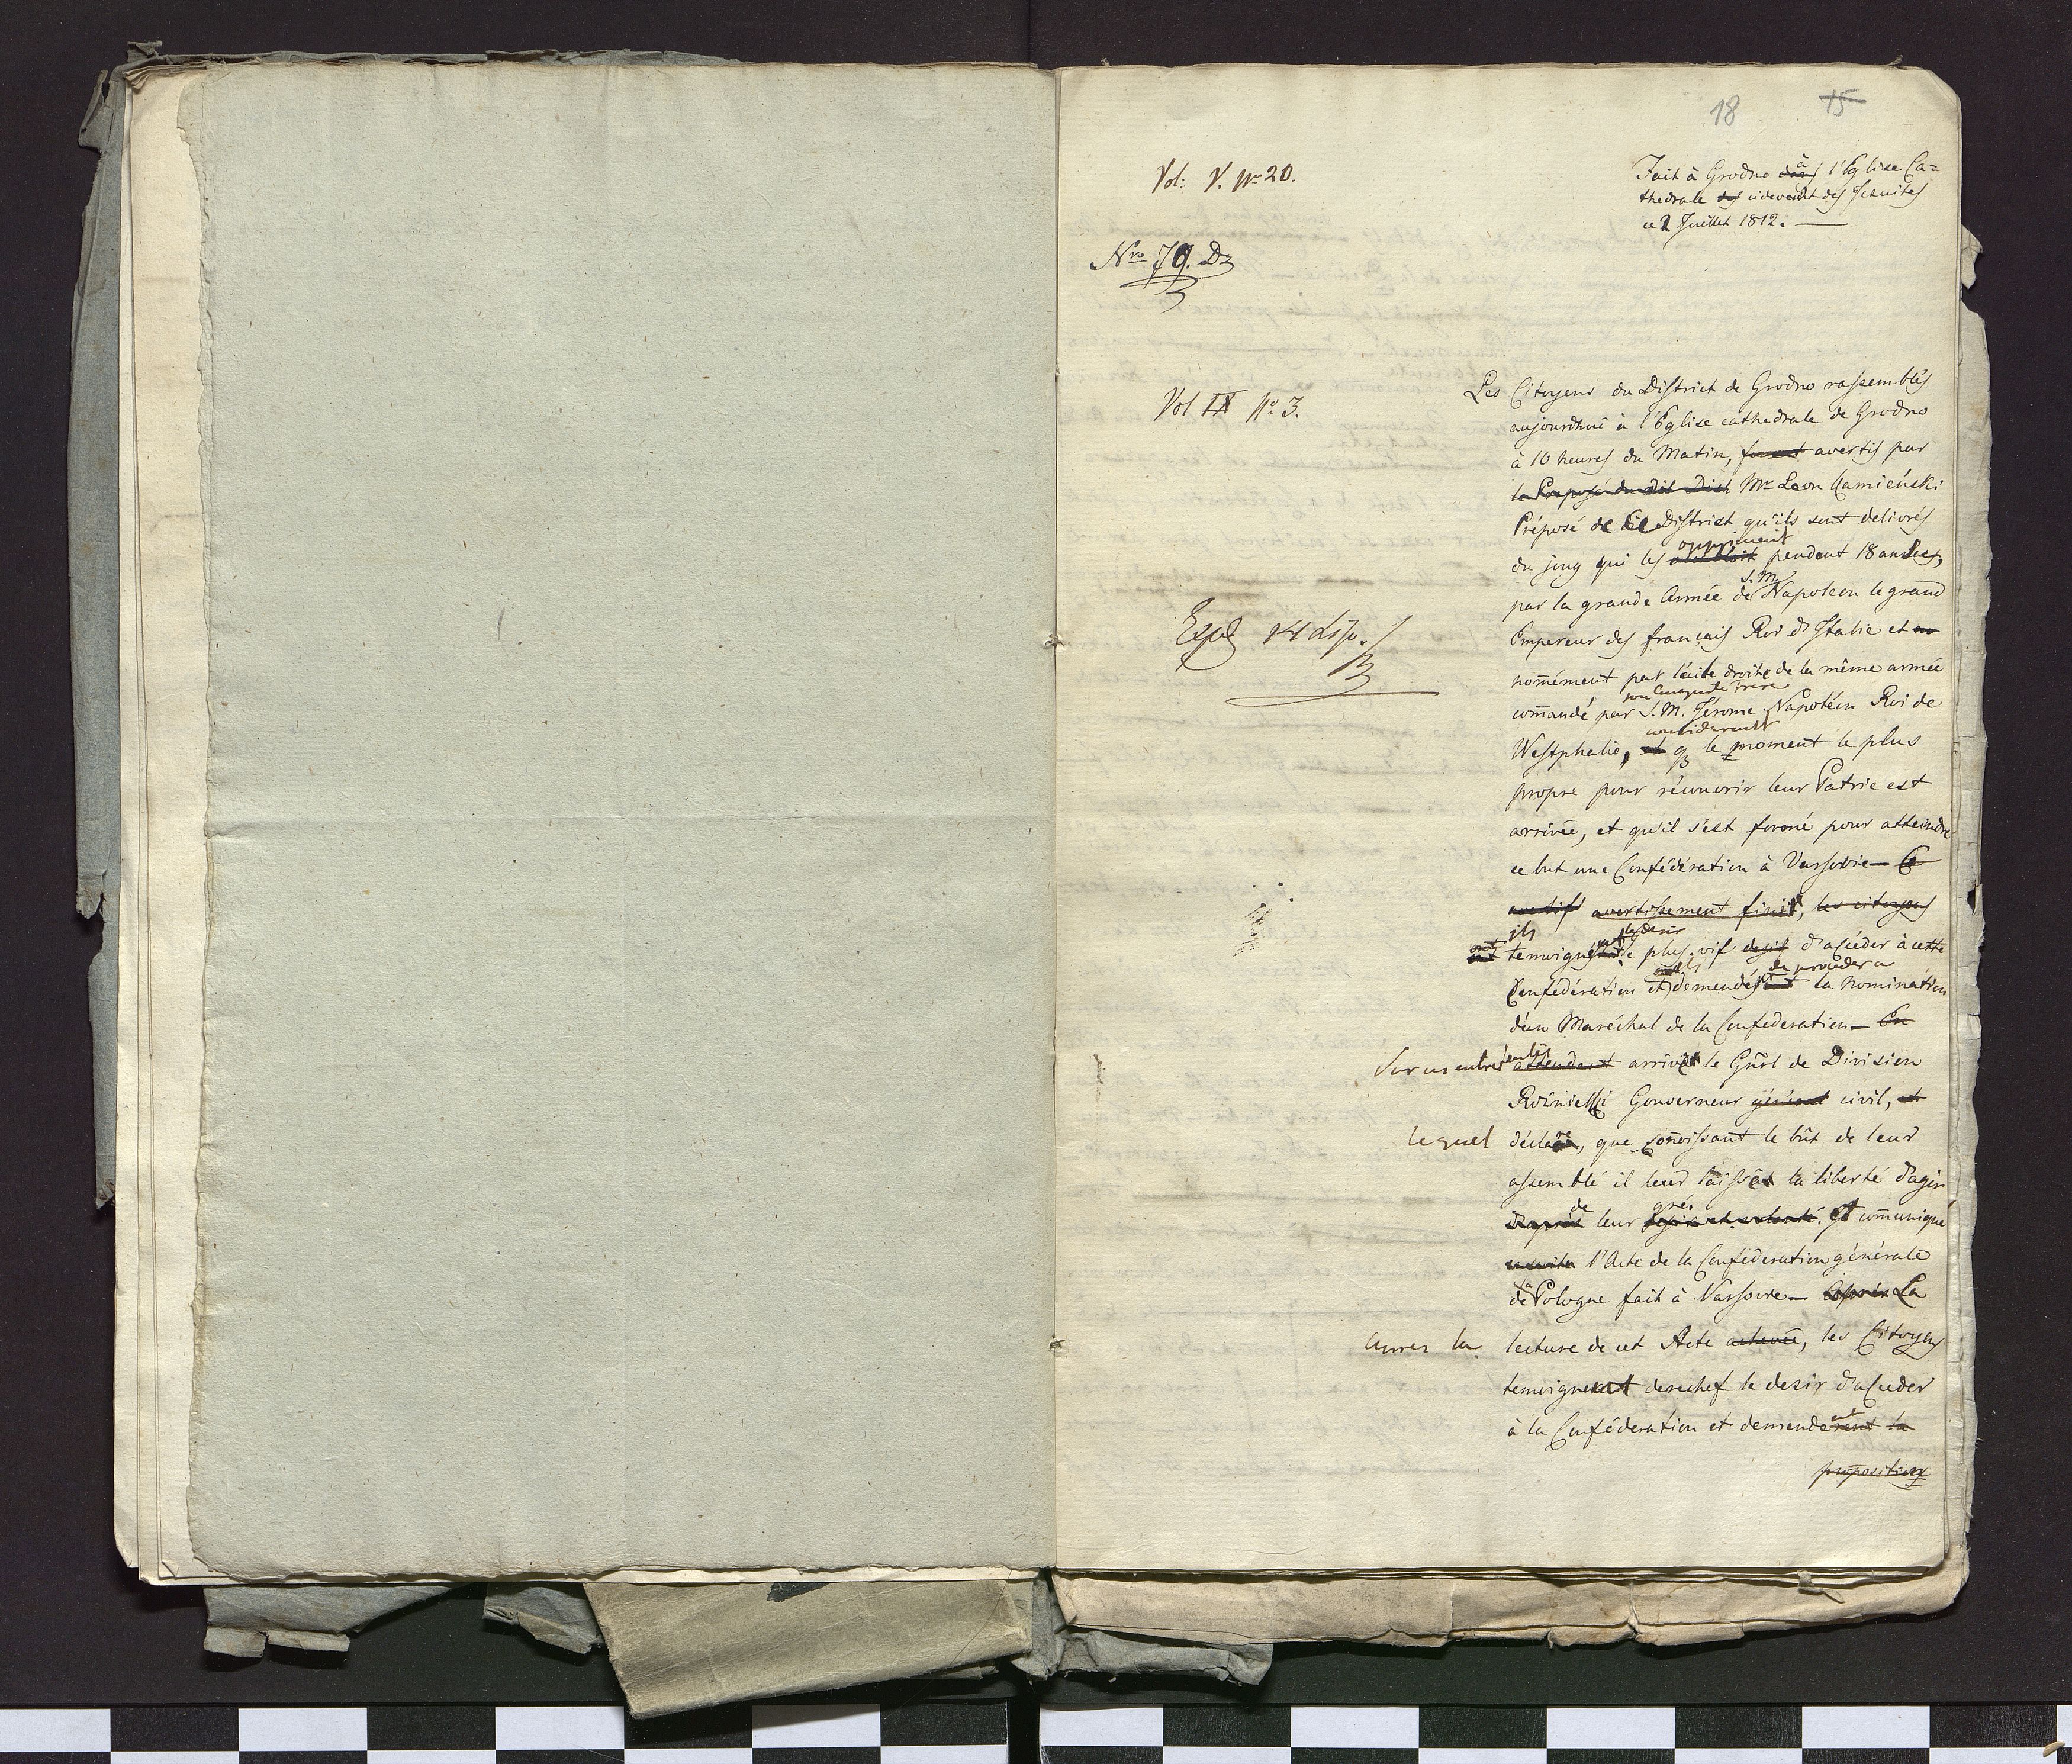 18 15
Vol: V. No 20.
Fait à Grodno à l'Eglise Ca=
thedrale cidevant des Jesuites
ce 2 Juillet 1812. —
Nro 79. Dz
Vol IX No 3.
Les Citoyens du District de Grodno rassemblés
aujourdhui à l'Eglise cathedrale de Grodno
à 10 heures du Matin, furent avertis par
le Preposé du dit Dist Mr Leon Kamieński
Préposé de ce District qu'ils sont delivrés
du joug qui les oppriment pendant 18 années,
par la grande Armée de S. M. Napoleon le grand
Empereur des français Roi d'Italie et
nomément par l'aile droite de la même armée
son Auguste Frere
comandé par S. M. Jérome Napoléon Roi de
considerant
Westphalie, et q le moment le plus
propre pour récouvrir leur Patrie est
arrivée, et qu'il s'est formé pour atteindre
ce but une Confédération à Varsovie — Ce
avertissement finit, les citoyens
ils
ont temoigné le plus vif desir d'acceder à cette
de proceder a
Confédération et demendé la nomination
d'un Maréchal de la Confederation — En
Sur ces entrefaites attendant arrive le Gnrl de Division
Rożniecki Gouverneur général civil, et
lequel déclare, que conoissant le bût de leur
assemblé il leur laisse la liberté d'agir
de grés
D'après leur desir et volonté. Et comunique
ensuite l'Acte de la Confederation générale
de la Pologne fait à Varsovie — Après La
Apres la lecture de cet Acte achevée, les Citoyens
temoignent derechef le desir d'acceder
à la Conféderation et demenderent la
proposition